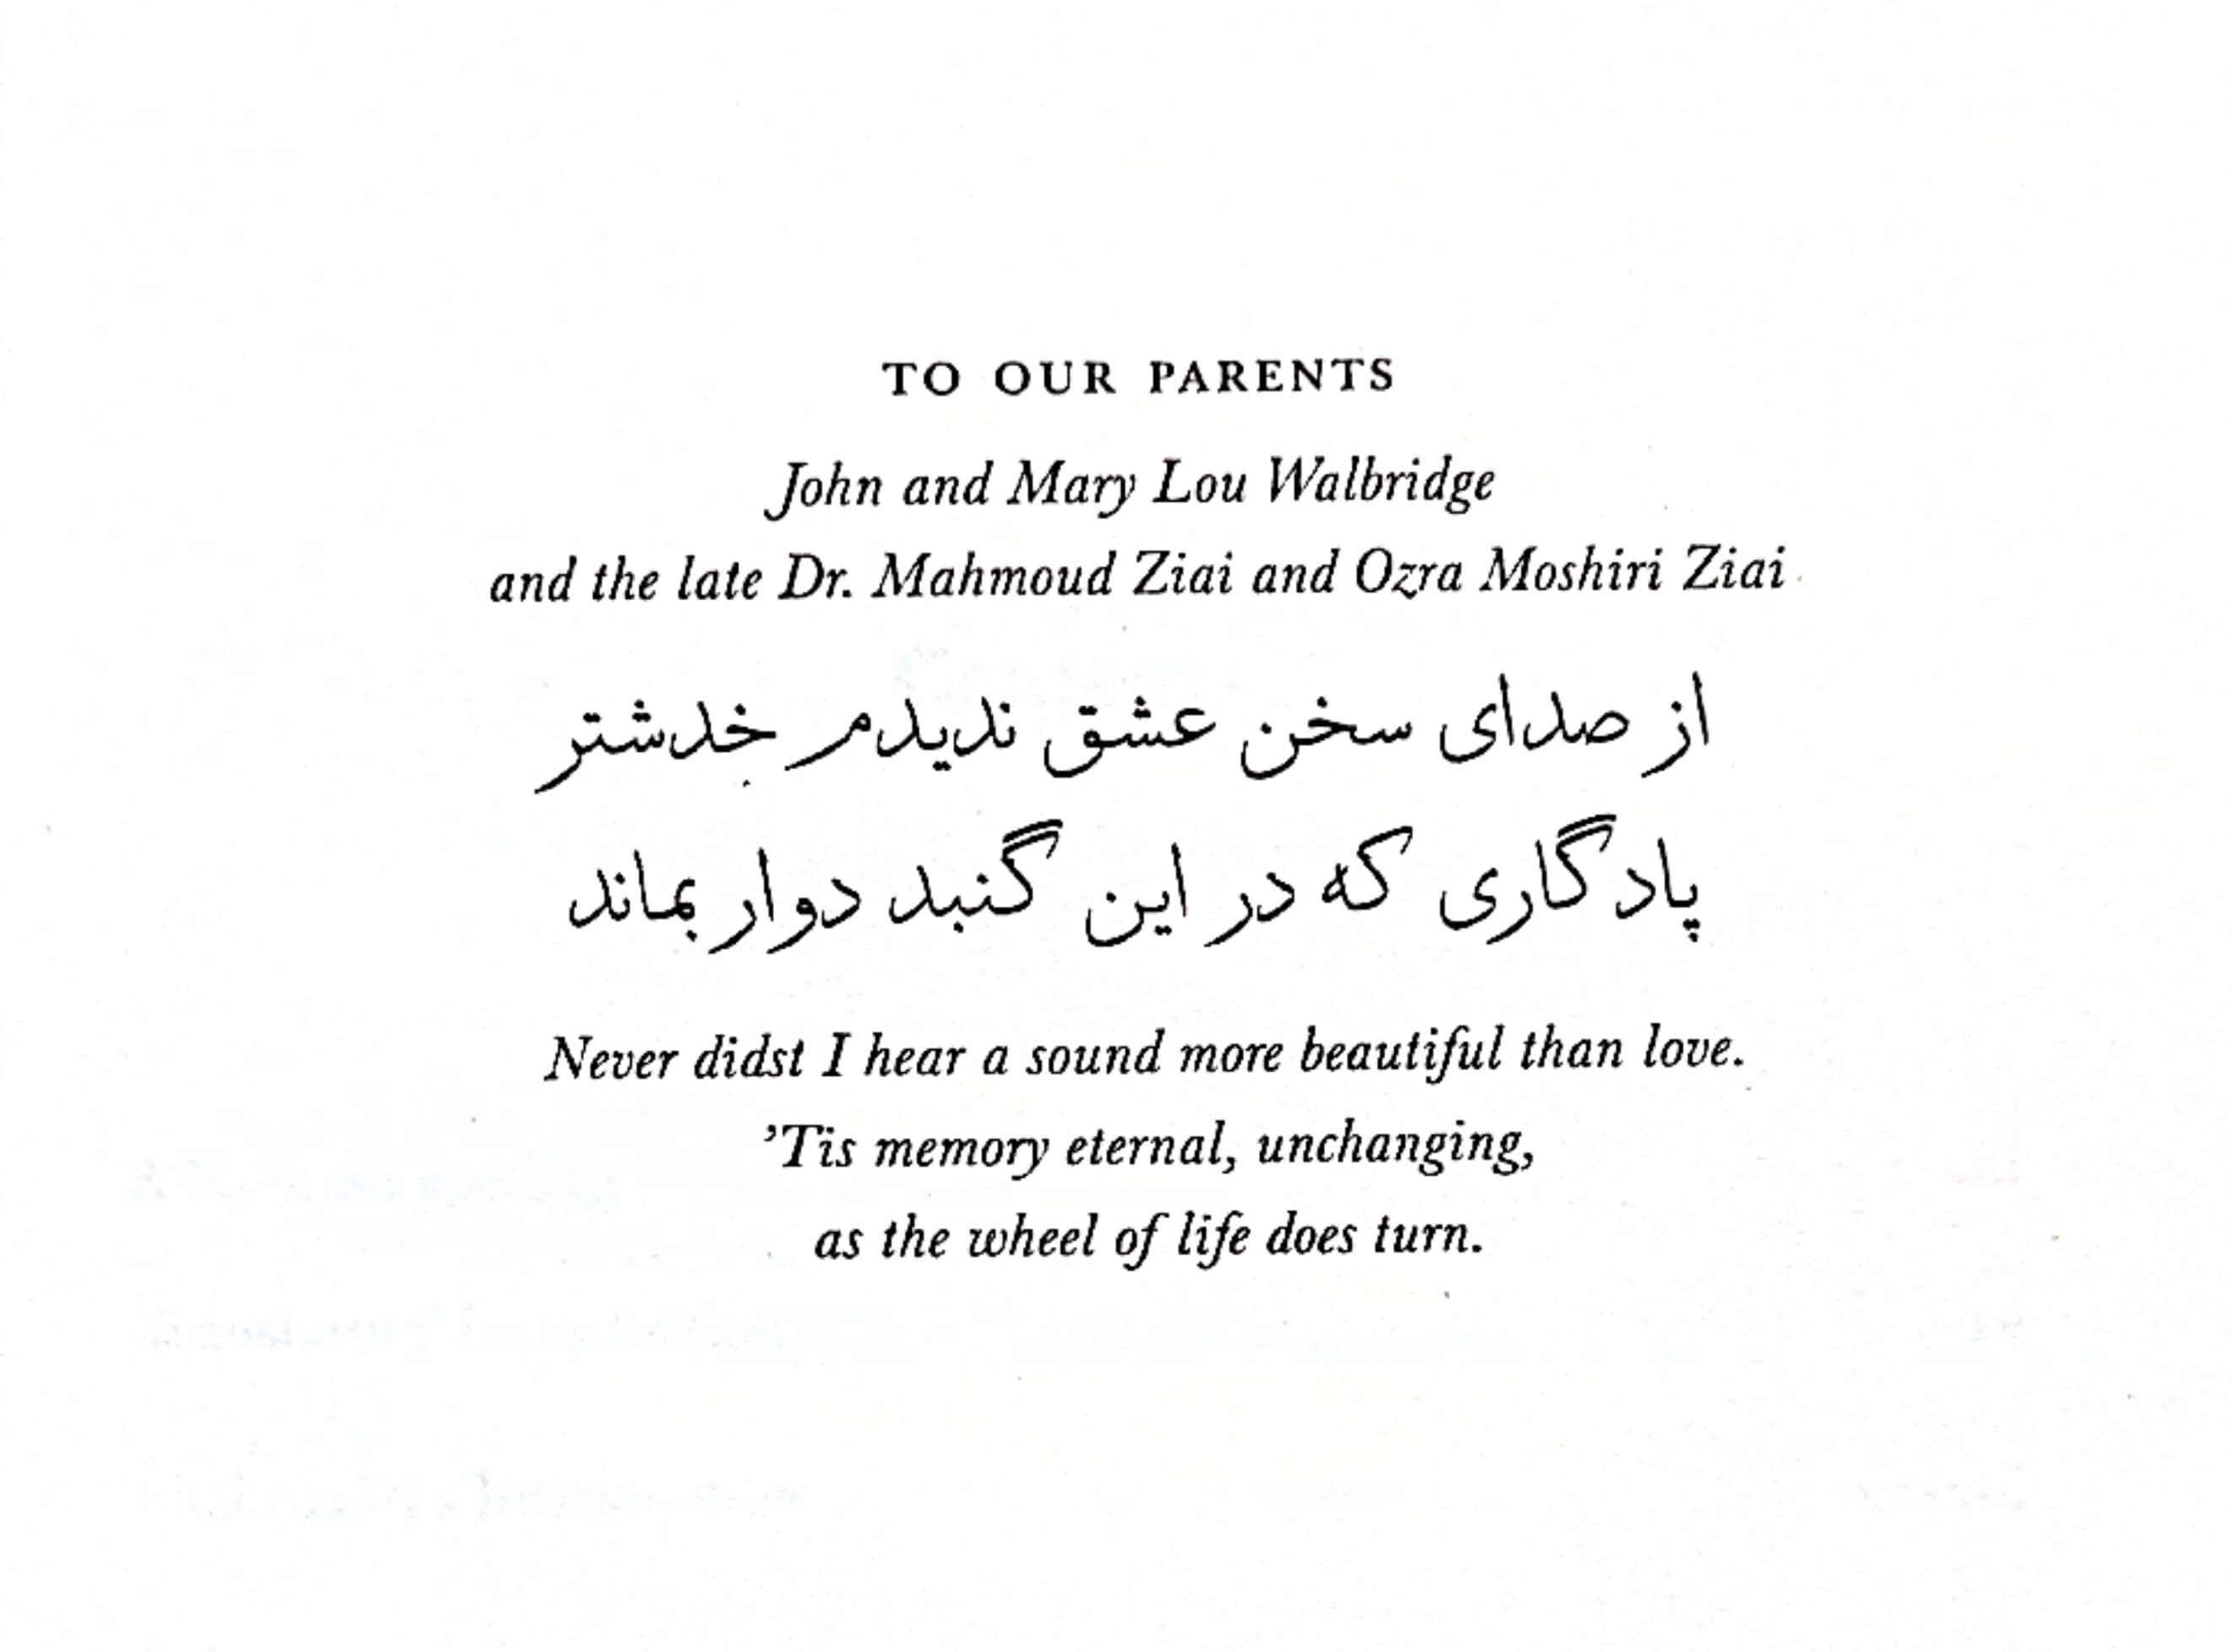 TO OUR PARENTS
John and Mary Lou Walbridge
and the late Dr. Mahmoud Ziai and Ozra Moshiri Ziai
از صدای سخن عشق ندیدم خدشتر
پادگاری که در این گنبد دوار بماند
Never didst I hear a sound more beautiful than love.
’Tis memory eternal, unchanging,
as the wheel of life does turn.